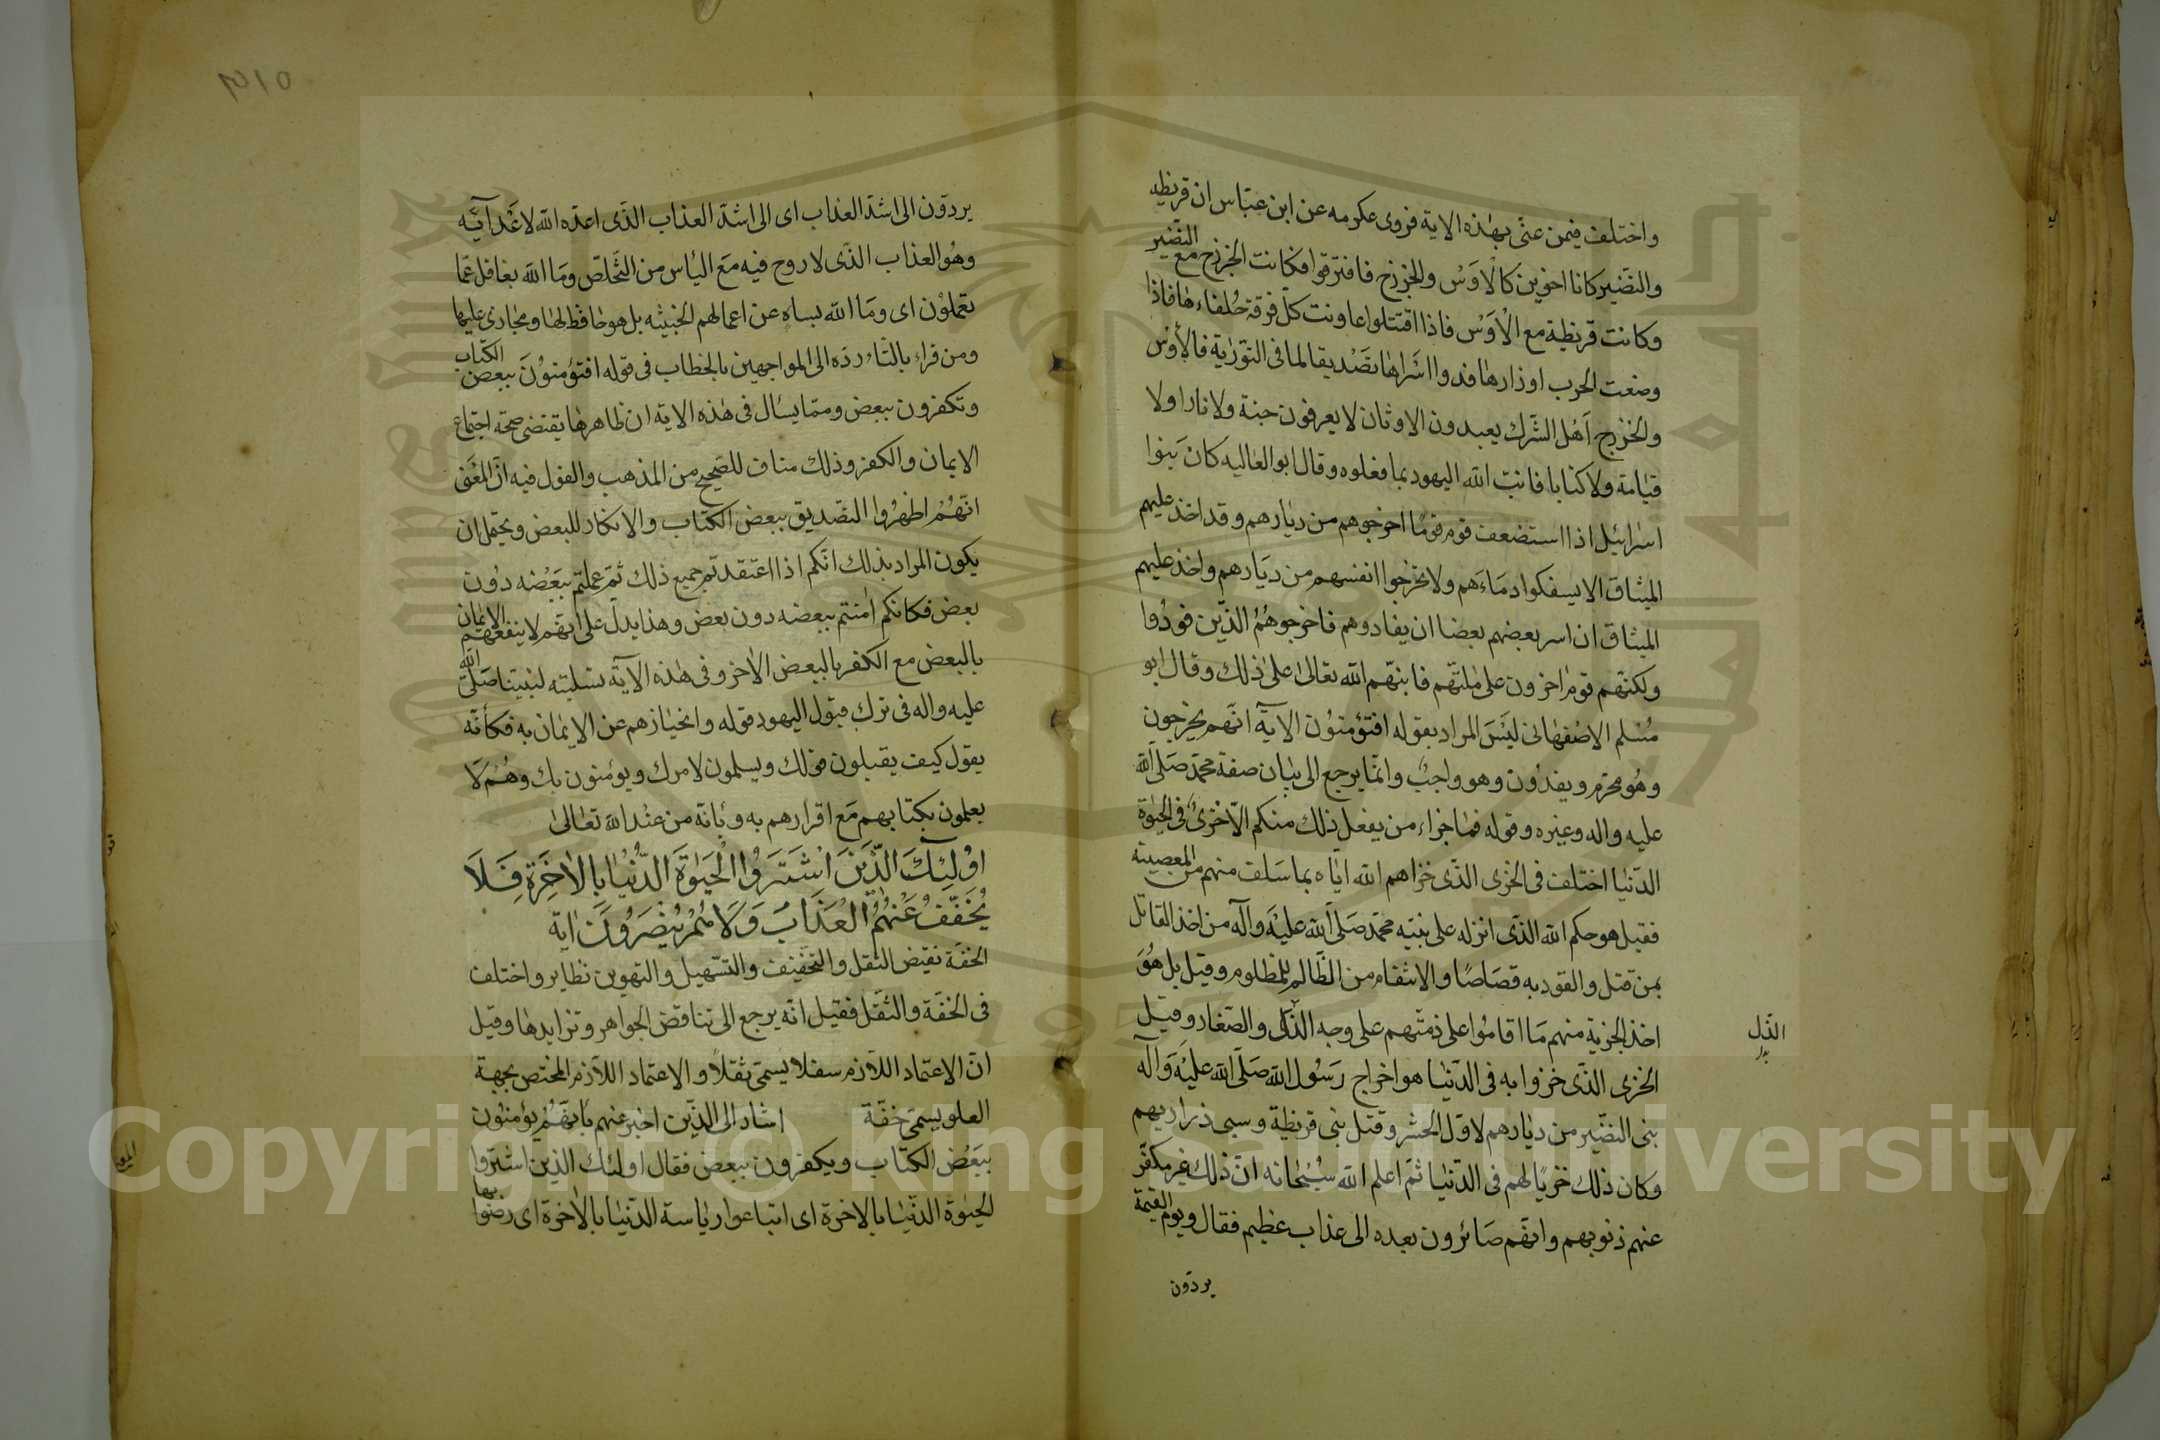 واختلف فيمن عنى بهذه الاية فروى عكرمه عن ابن عباس ان قريظه
والنضير كانا اخوين كالاوس والخزرج فافترقوا فكانت الخزرج مع النضير
وكانت قريظة مع الاوس فاذا اقتتلوا عاونت كل فرقة حلفاءها فاذا
وضعت الحرب اوزارها فدوا اسراها تصديقا لما فى التورية فالاوس
والخزرج اهل الشرك يعبدون الاوثان لا يعرفون جنة ولا نارا ولا
قيامة ولا كتابا فانبت الله اليهود بما فعلوه وقال ابو العاليه كان بنوا
اسرائيل اذا استضعف قوم قوما اخرجوهم من ديارهم وقد اخذ عليهم
الميثاق الا يسفكوا دماءهم ولا يخرجوا انفسهم من ديارهم واخذ عليهم
الميثاق ان اسر بعضهم بعضا ان يفادوهم فاخرجوهم الذين فودوا
ولكنهم قوم اخرون على ملتهم فانبهم الله تعالى على ذلك وقال ابو
مسلم الاصفهانى ليس المراد بقوله افتؤمنون الاية انهم يخرجون
وهو محرم ويفدون وهو واجب وانما يرجع الى بيان صفة محمد صلى الله
عليه واله وغيره وقوله فما جزاء من يفعل ذلك منكم الا خزى فى الحيوة
الدنيا اختلف فى الخزى الذى خزاهم الله اياه بما سلف منهم من المعصية
فقيل هو حكم الله الذى انزله على نبيه محمد صلى الله عليه وآله من اخذ القاتل
بمن قتل والقود به قصاصا والانتقام من الظالم للمظلوم وقيل بل هو
اخذ الجزية منهم ما اقاموا على ذمتهم على وجه الذل والصغار وقيل
الذل
الخزى الذى خزوا به فى الدنيا هو اخراج رسول الله صلى الله عليه وآله
بنى النضير من ديارهم لاول الحشر وقتل بنى قريظة وسبى ذراريهم
وكان ذلك خزيا لهم فى الدنيا ثم اعلم الله سبحانه ان ذلك غير مكفر
عنهم ذنوبهم وانهم صائرون بعده الى عذاب عظيم فقال ويوم القيمة
يردون
يردون الى اشد العذاب اى الى اشد العذاب الذى اعده الله لاعدآئه
وهو العذاب الذى لا روح فيه مع الياس من التخلص وما الله بغافل عما
تعملون اى وما الله بساه عن اعمالهم الخبيثه بل هو حافظ لها ومجازى عليها
ومن قراء بالتاء رده الى المواجهين بالخطاب فى قوله افتؤمنون ببعض الكتاب
وتكفرون ببعض ومما يسال فى هذه الاية ان ظاهرها يقتضى صحة اجتماع
الايمان والكفر وذلك مناف للصحيح من المذهب والقول فيه ان المعنى
انهم اظهروا التصديق ببعض الكتاب والانكار للبعض ويحتمل ان
يكون المراد بذلك انكم اذا اعتقدتم جميع ذلك ثم عملتم ببعضه دون
بعض فكانكم امنتم ببعضه دون بعض وهذا يدل على انهم لا ينفعهم الايمان
بالبعض مع الكفر بالبعض الاخر وفى هذه الآية تسلية لنبينا صلى الله
عليه واله فى ترك قبول اليهود قوله وانحيازهم عن الايمان به فكأنه
يقول كيف يقبلون قولك ويسلمون لامرك ويؤمنون بك وهم لا
يعلمون بكتابهم مع اقرارهم به وبانه من عند الله تعالى
اولئك الذين اشتروا الحيوة الدنيا بالاخرة فلا
يخفف عنهم العذاب ولا هم ينصرون اية
الخفة نقيض الثقل والتخفيف والتسهيل والتهوين نظاير واختلف
فى الخفة والثقل فقيل انه يرجع الى تناقض الجواهر وتزايدها وقيل
ان الاعتماد اللازم سفلا يسمى ثقلا والاعتماد اللازم المختص بجهة
العلو يسمى خفة اشار الى الذين اخبر عنهم بانهم يؤمنون
ببعض الكتاب ويكفرون ببعض فقال اولئك الذين اشتروا
الحيوة الدنيا بالاخرة اى ابتاعوا رياسة الدنيا بالاخرة اى رضوا بها
Copyright © King Saud University